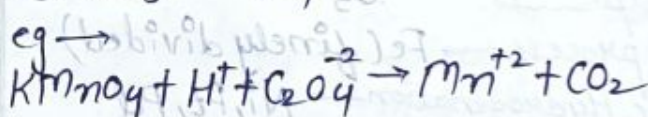 eg →
KMnO4 + H+ + C2O4-2 → Mn+2 + CO2